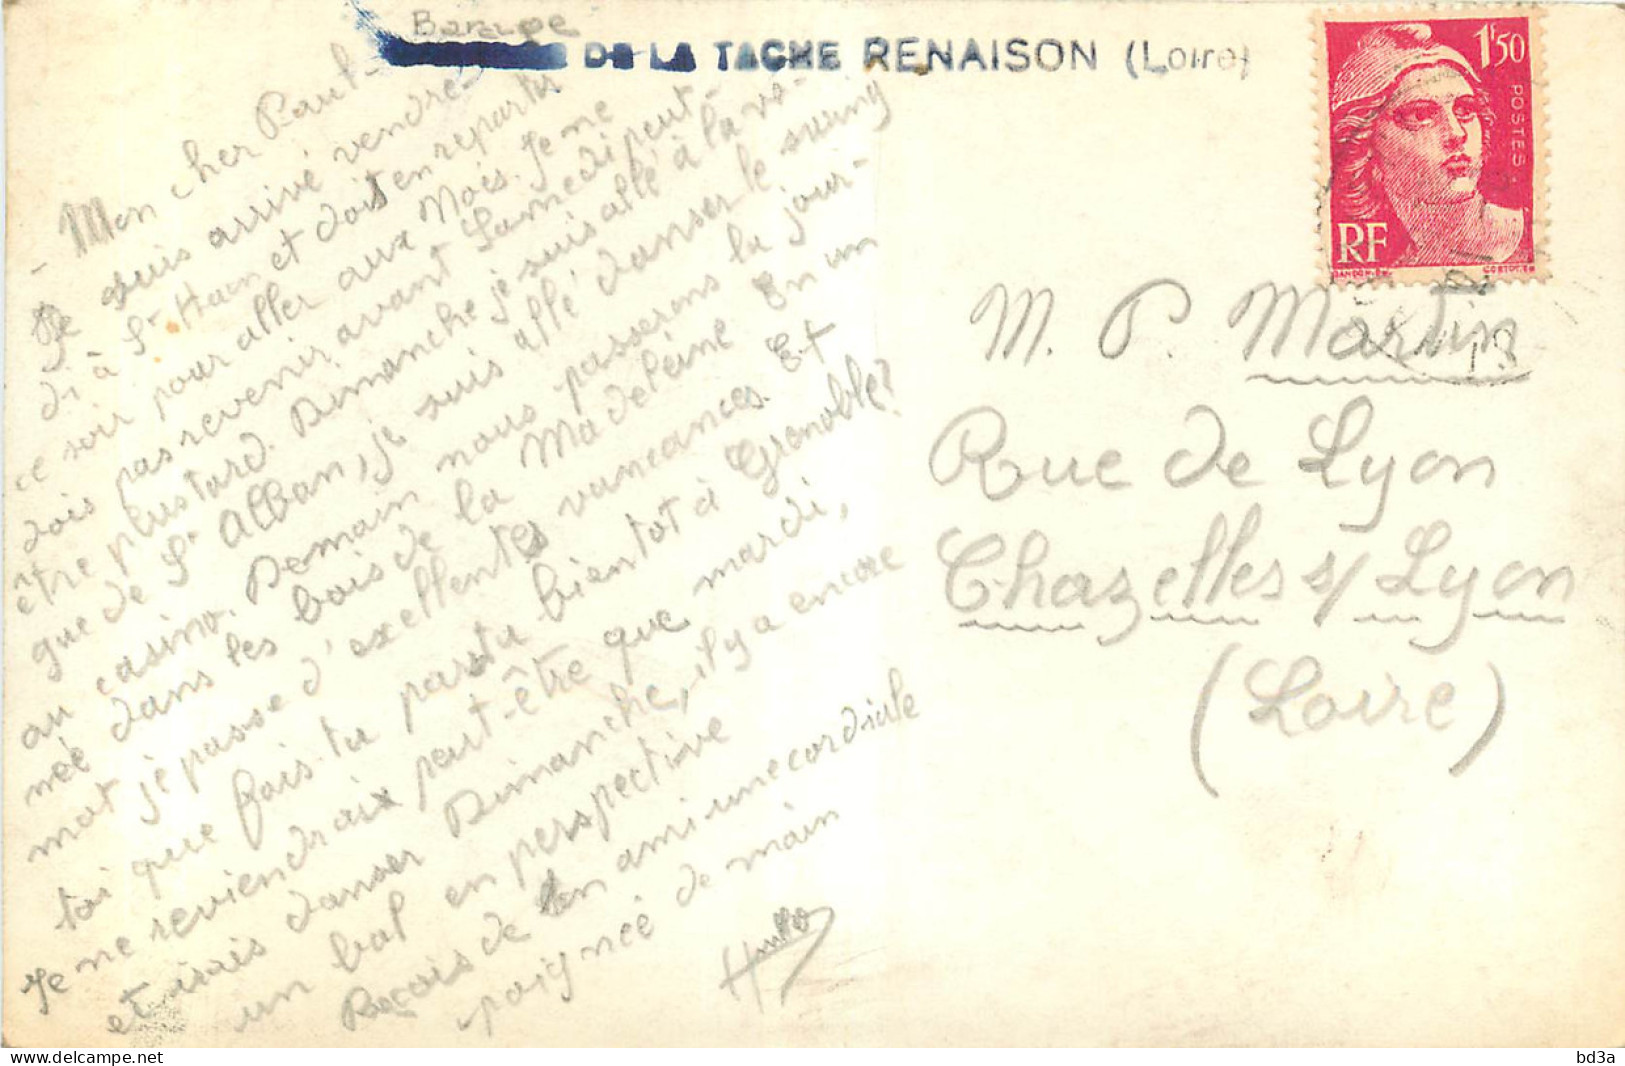 DE LA TACHE RENAISON (Loire)
1F50
POSTES
RF
GANDON
CORTOT
- Mon cher Paul -
Je suis arrivé vendre-
di à St Haon et dois en repartir
ce soir pour aller aux Noës. Je ne
dois pas revenir avant Samedi peut-
être plus tard. Dimanche je suis allé à la vo-
gue de St Alban, je suis allé danser le swing
au casino. Demain nous passerons la jour-
née dans les bois de la Madeleine En un
mot je passe d'excellentes vancances. Et
toi que fais-tu pars tu bientot à Grenoble?
Je ne reviendrais peut-être que mardi,
et irais danser Dimanche, il y a encore
un bal en perspective
Reçois de ton ami une cordiale
poignée de main
M. P. Martin
Rue de Lyon
Chazelles s/ Lyon
(Loire)
bd3a